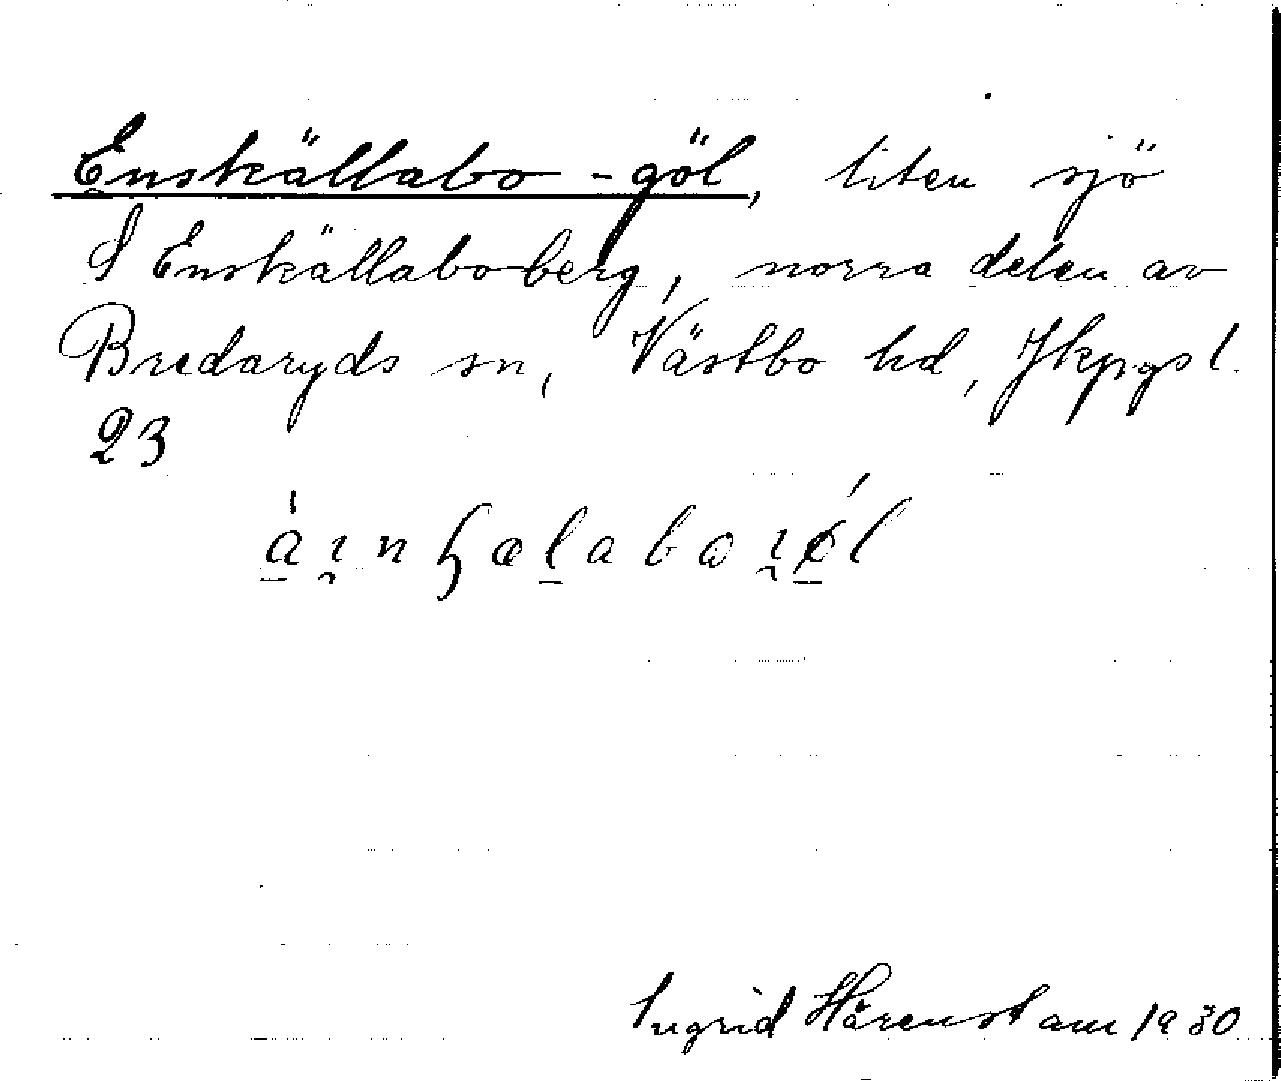 Enskällabo-göl, liten sjö
S Enskällabo-berg, norra delen av
Bredaryds sn, Västbo hd, Jkpgs l.
23
Ingrid Hårenstam 1930